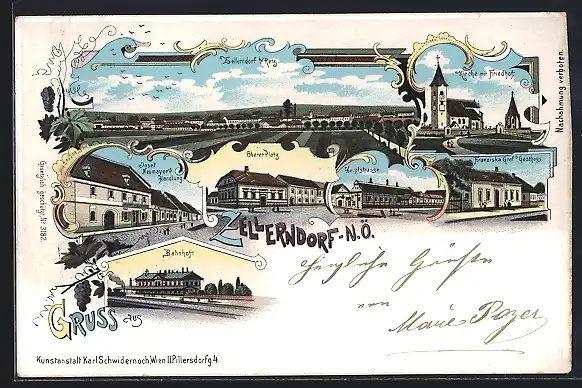 Zellerndorf b/Retz.
Kirche mit Friedhof.
Nachahmung verboten.
Josef
Neumayer's
Handlung
Oberer Platz
Hauptstrasse
Franziska Graf's Gasthaus
Gesetzlich geschützt. Nr 3182.
ZELLERNDORF - N.Ö.
Bahnhof
GRUSS aus
herzliche Grüße
von
Marie
Kunstanstalt Karl Schwidernoch, Wien II. Pillersdorfg. 4.